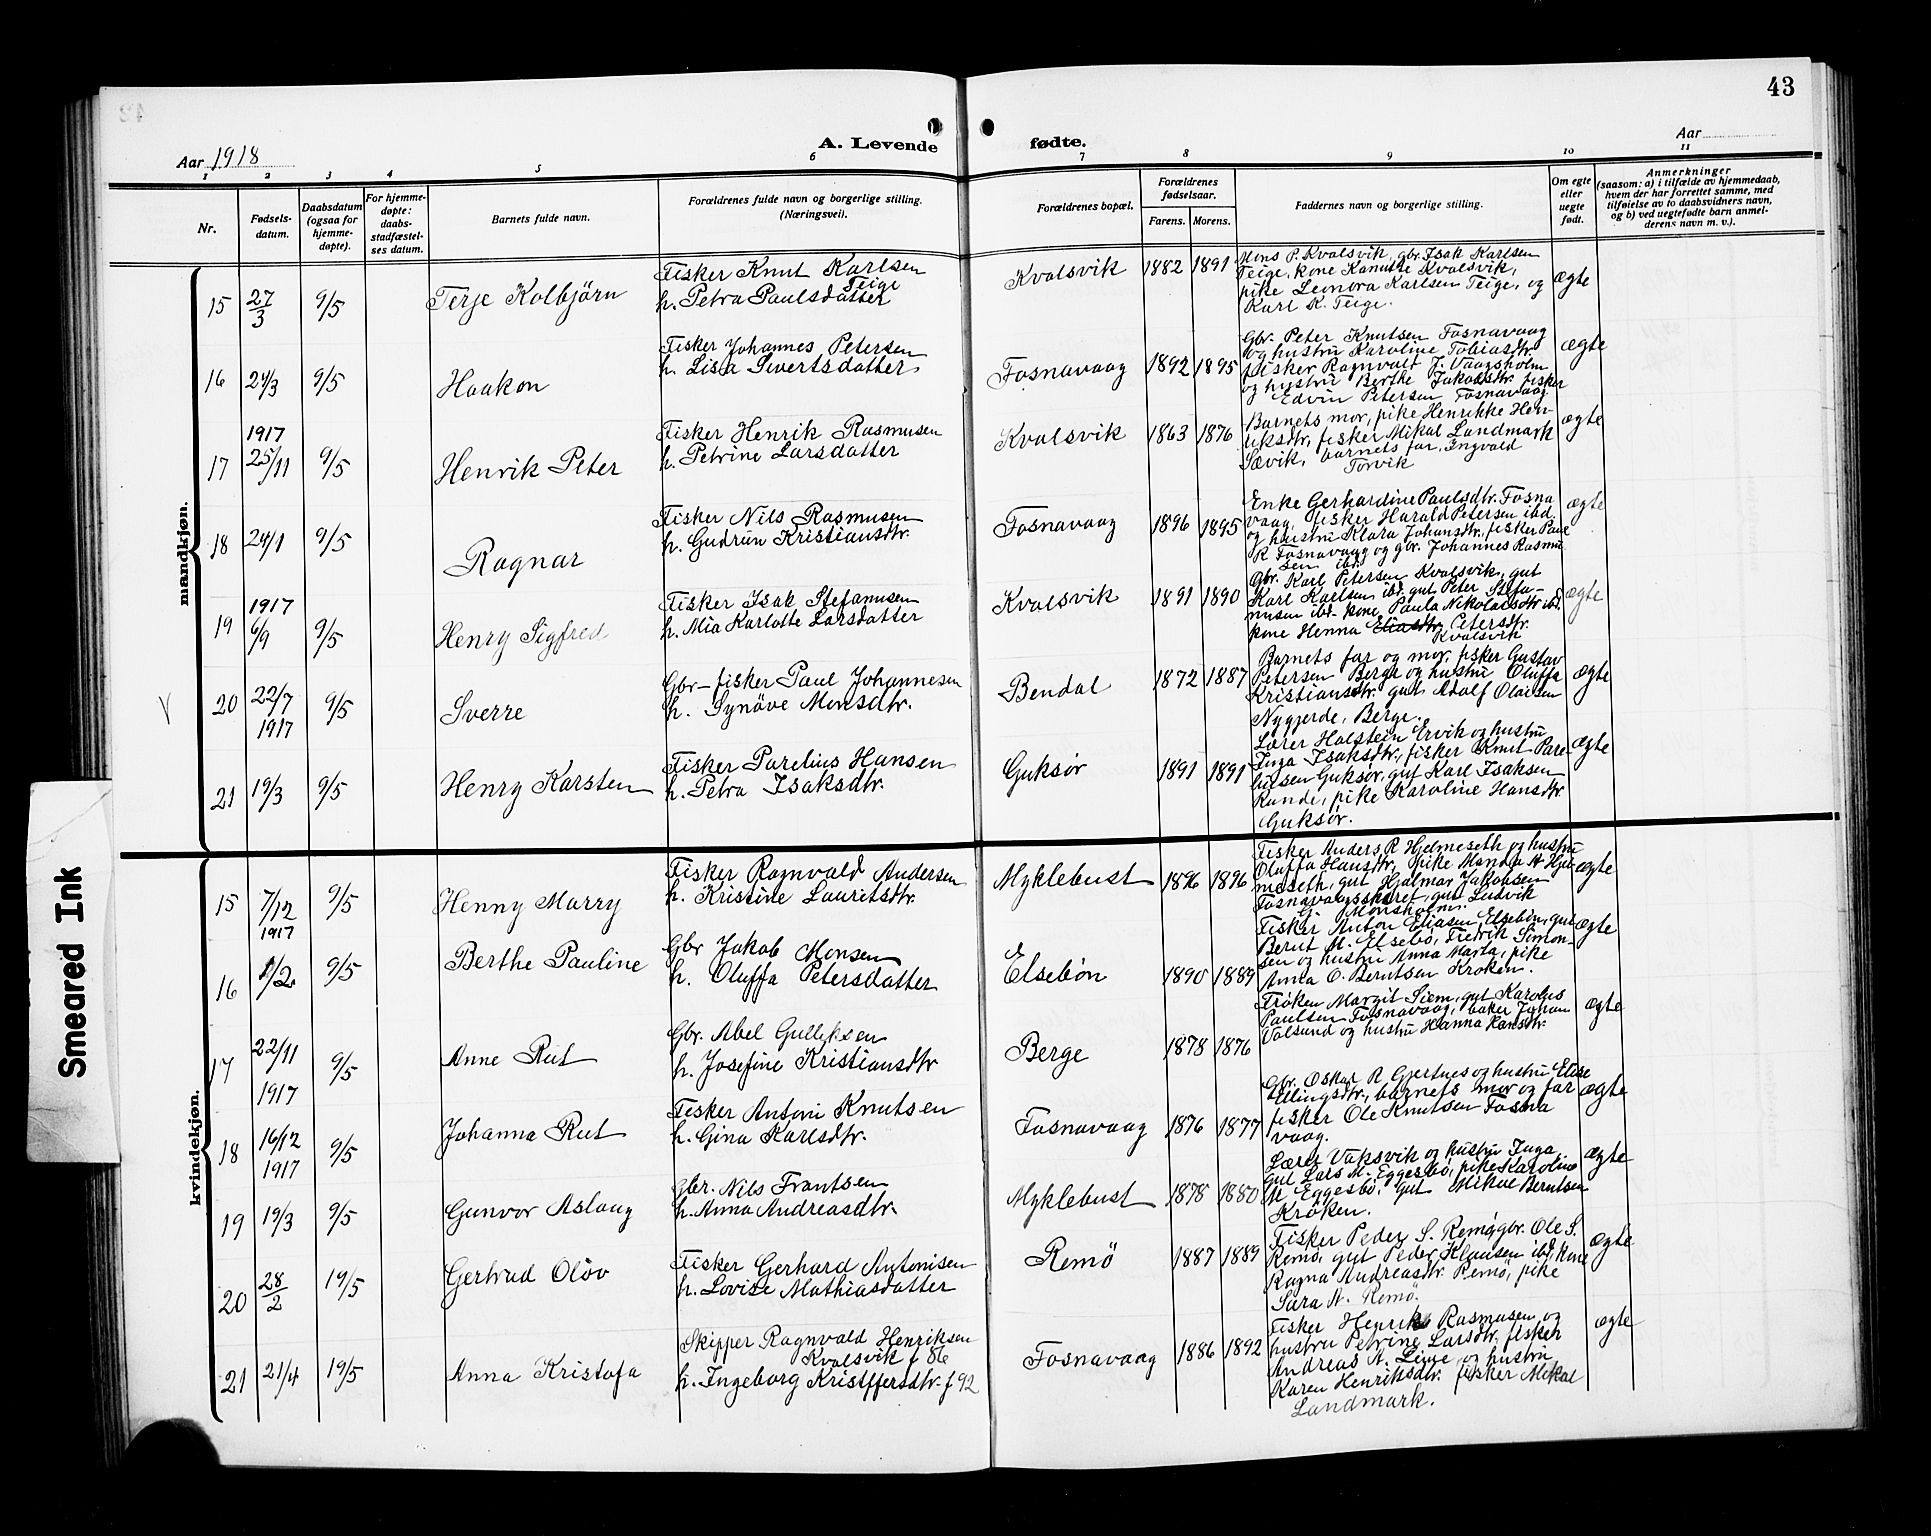 43
Aar 1918
A. Levende fødte.
Aar
1 2 3 4 5 6 7 8 9 10 11
Nr.
Fødsels-
datum.
Daabsdatum
(ogsaa for
hjemme-
døpte).
For hjemme-
døpte:
daabs-
stadfæstel-
ses datum.
Barnets fulde navn.
Forældrenes fulde navn og borgerlige stilling.
(Næringsvei).
Forældrenes bopæl.
Forældrenes
fødselsaar.
Farens. Morens.
Faddernes navn og borgerlige stilling.
Om egte
eller
uegte
født.
Anmerkninger
(saasom: a) i tilfælde av hjemmedaab,
hvem der har forrettet samme, med
tilføielse av to daabsvidners navn,
og b) ved uegtefødte barn anmel-
derens navn m. v.).
mandkjøn.
15 27/3 9/5 Terje Kolbjörn
Fisker Knut Karlsen
Teige
h. Petra Paulsdatter
Kvalsvik 1882 1891
Mons P. Kvalsvik, gbr. Isak Karlsen
Teige, kone Kvalsvik,
pike Leonora Karlsen Teige, og
Karl K. Teige.
ægte
16 24/3 9/5 Haakon
Fisker Johannes Petersen
h. Lisa Sivertsdatter
Fosnavaag 1892 1895
Gbr. Peter Knutsen Fosnavaag
og hustru Karoline Tobiasdtr.
fisker Ragnvalt J. Vaagsholm
og hustru Berthe Jakobsdtr. fisker
Edvin Petersen Fosnavaag
ægte
17 1917 25/11 9/5 Henrik Peter
Fisker Henrik Rasmusen
h. Petrine Larsdatter
Kvalsvik 1863 1876
Barnets mor, pike Henrikke Hen-
riksdtr, fisker Mikal Landmark
Sævik, barnets far, Ingvald
Torvik
ægte
18 24/1 9/5 Ragnar
Fisker Nils Rasmusen
h. Gudrun Kristiansdtr.
Fosnavaag 1896 1895
Enke Gerhardine Paulsdtr. Fosna
vaag, fisker Harald Petersen ibd.
og hustru Klara Johansdtr, fisker Paul
R. Fosnavaag og gbr. Johannes Rasmu
sen ibd.
ægte
19 1917 6/9 9/5 Henry Sigfred
Fisker Isak Stefanusen
h. Mia Karlotte Larsdatter
Kvalsvik 1891 1890
gbr. Karl Petersen Kvalsvik, gut
Karl Karlsen ibd. gut Peter Stefa-
nusen ibd. kone Paula Nikolaisdtr ibd.
kone Henna Eliasdtr Petersdtr.
Kvalsvik
ægte
V 20 22/7 1917 9/5 Sverre
Gbr-fisker Paul Johannesen
h. Synöve Monsdtr.
Bendal 1872 1887
Barnets far og mor, fisker Gustav
Petersen Berge og hustru Oluffa
Kristiansdtr. gut Adolf Olaisen
Nygjerde, Berge.
ægte
21 19/3 9/5 Henry Karsten
Fisker Parelius Hansen
h. Petra Isaksdtr.
Guksør 1891 1891
Lærer Halstein Ervik og hustru
Inga Isaksdtr, fisker Knut Pare-
liusen Guksør, gut Karl Isaksen
Runde, pike Karoline Hansdtr
Guksør.
ægte
kvindekjøn.
15 7/12 1917 9/5 Henny Marry
Fisker Ragnvald Andersen
h. Kristine Lauritsdtr.
Myklebust 1896 1896
Fisker Anders R Hjelmeseth og hustru
Oluffa Hansdtr, pike Manda A Hjel-
meseth, gut Hjalmar Jakobsen
Fosnavaagsskaret, gut Ludvik
G. Monsholm.
ægte
16 1/2 9/5 Berthe Pauline
Gbr Jakob Monsen
h. Oluffa Petersdatter
Elsebøn 1890 1889
Fisker Anton Eliasen Elsebøn, gut
Berut M. Elsebø, Fredrik Simon-
sen og hustru Anna Marta, pike
Anna O. Berntsen Kroken.
ægte
17 22/11 1917 9/5 Anne Rut
Gbr. Abel Gulliksen
h. Josefine Kristiansdtr
Berge 1878 1876
Frøken Margit Siem, gut Karolus
Paulsen Fosnavaag, baker Johan
Valsund og hustru Hanna Hansdtr.
ægte
18 16/12 1917 9/5 Johanna Rut
Fisker Antoni Knutsen
h. Gina Karlsdtr.
Fosnavaag 1876 1877
Gbr. Oskar R Gjertnes og hustru Elise
Ellingsdtr, barnets mor og far
fisker Ole Knutsen Fosna
vaag.
ægte
19 19/3 9/5 Gunvor Aslaug
gbr. Nils Frantsen
h. Anna Andreasdtr.
Myklebust 1878 1880
Lærer Vaksvik og hustru Inga
Gut Lars M. Eggesbø, pike Karoline
M Eggesbø, gut Mikal Berntsen
Krøken.
ægte
20 28/2 19/5 Gertrud Oløv
Fisker Gerhard Antonisen
h. Lovise Mathiasdatter
Remö 1887 1889
Fisker Peder S. Remø, gbr. Ole S.
Remø, gut Peder Klausen ibd, kone
Ragna Andreasdtr. Remø, pike
Sara A. Remø.
ægte
21 21/4 19/5 Anna Kristofa
Skipper Ragnvald Henriksen
Kvalsvik f 86
h. Ingeborg Kristffersdtr. f 92
Fosnavaag 1886 1892
Fisker Henrik Rasmusen og
hustru Petrine Larsdtr, fisker
Andreas A. Line og hustru
Karen Henriksdtr. fisker Mikal
Landmark.
ægte
Smeared Ink